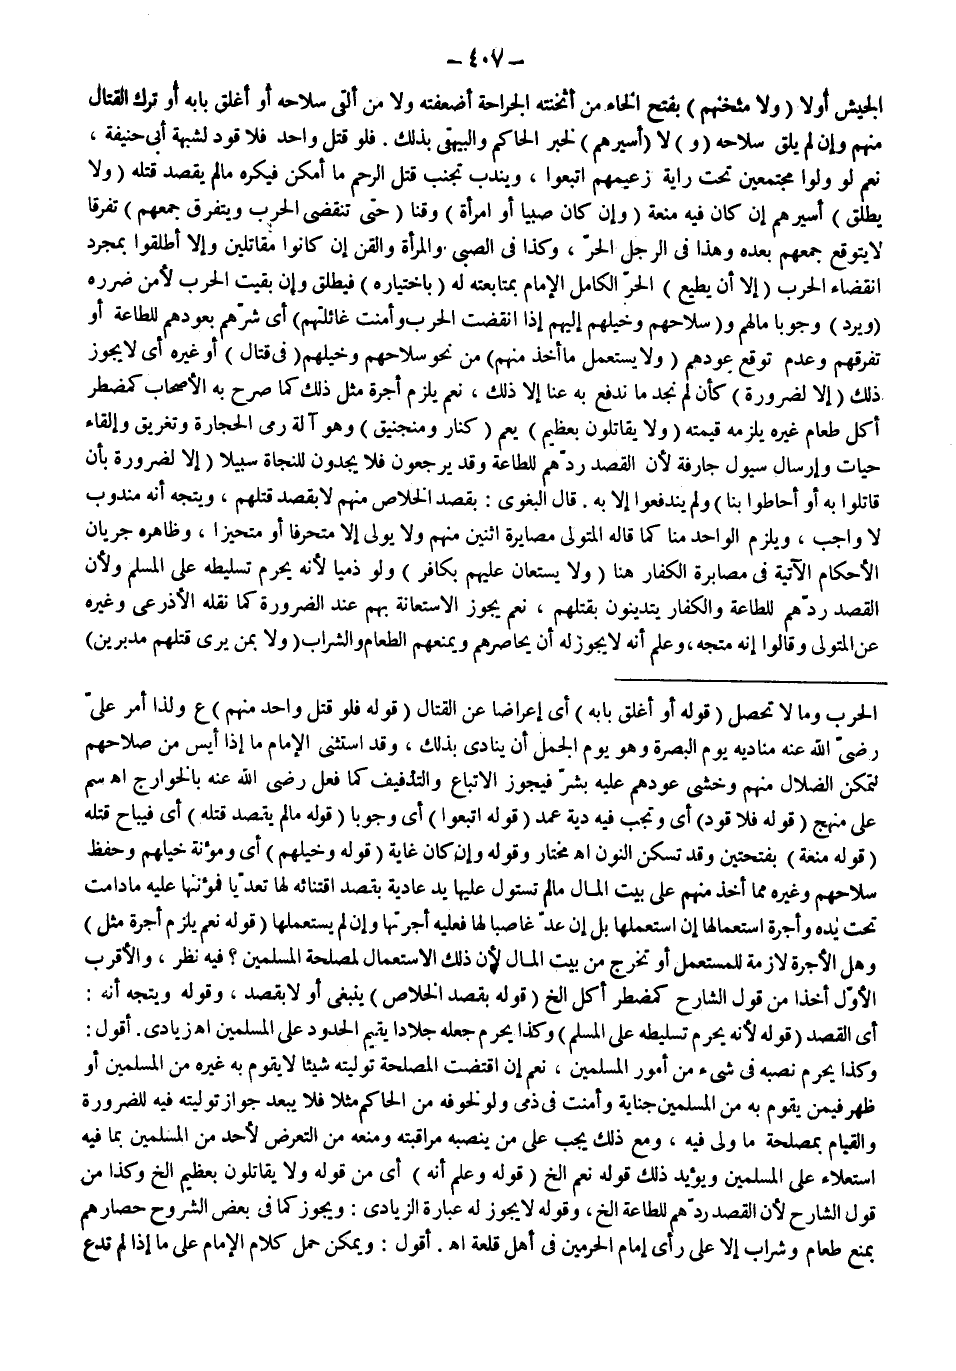 — ٤٠٧ —
الجيش أولا ( ولا مثخنهم ) بفتح الخاء من أثخنته الجراحة أضعفته ولا من ألقى سلاحه أو أغلق بابه أو ترك القتال
منهم وإن لم يلق سلاحه ( و ) لا ( أسيرهم ) لخبر الحاكم والبيهقى بذلك . فلو قتل واحد فلا قود لشبهة أبى حنيفة ،
نعم لو ولوا مجتمعين تحت راية زعيمهم اتبعوا ، ويندب تجنب قتل الرحم ما أمكن فيكره مالم يقصد قتله ( ولا
يطلق ) أسيرهم إن كان فيه منعة ( وإن كان صبيا أو امرأة ) وقنا ( حتى تنقضى الحرب ويتفرق جمعهم ) تفرقا
لايتوقع جمعهم بعده وهذا فى الرجل الحرّ ، وكذا فى الصبى والمرأة والقن إن كانوا مقاتلين وإلا أطلقوا بمجرد
انقضاء الحرب ( إلا أن يطيع ) الحرّ الكامل الإمام بمتابعته له ( باختياره ) فيطلق وإن بقيت الحرب لأمن ضرره
( ويرد ) وجوبا مالهم و( سلاحهم وخيلهم إليهم إذا انقضت الحرب وأمنت غائلتهم) أى شرّهم بعودهم للطاعة أو
تفرقهم وعدم توقع عودهم ( ولا يستعمل ما أخذ منهم) من نحو سلاحهم وخيلهم( فى قتال ) أو غيره أى لايجوز
ذلك ( إلا لضرورة ) كأن لم نجد ما ندفع به عنا إلا ذلك ، نعم يلزم أجرة مثل ذلك كما صرح به الأصحاب كمضطر
أكل طعام غيره يلزمه قيمته ( ولا يقاتلون بعظيم ) يعم ( كنار ومنجنيق ) وهو آلة رمى الحجارة وتغريق وإلقاء
حيات وإرسال سيول جارفة لأن القصد ردّهم للطاعة وقد يرجعون فلا يجدون للنجاة سبيلا ( إلا لضرورة بأن
قاتلوا به أو أحاطوا بنا ) ولم يندفعوا إلا به . قال البغوى : بقصد الخلاص منهم لابقصد قتلهم ، ويتجه أنه مندوب
لا واجب ، ويلزم الواحد منا كما قاله المتولى مصابرة اثنين منهم ولا يولى إلا متحرفا أو متحيزا ، وظاهره جريان
الأحكام الآتية فى مصابرة الكفار هنا ( ولا يستعان عليهم بكافر ) ولو ذميا لأنه يحرم تسليطه على المسلم ولأن
القصد ردّهم للطاعة والكفار يتدينون بقتلهم ، نعم يجوز الاستعانة بهم عند الضرورة كما نقله الأذرعى وغيره
عن المتولى وقالوا إنه متجه، وعلم أنه لايجوز له أن يحاصرهم ويمنعهم الطعام والشراب( ولا بمن يرى قتلهم مدبرين)
الحرب وما لا تحصل ( قوله أو أغلق بابه ) أى إعراضا عن القتال ( قوله فلو قتل واحد منهم ) ع ولذا أمر علىّ
رضىّ الله عنه مناديه يوم البصرة وهو يوم الجمل أن ينادى بذلك ، وقد استثنى الإمام ما إذا أيس من صلاحهم
لتمكن الضلال منهم وخشى عودهم عليه بشرّ فيجوز الاتباع والتذفيف كما فعل رضى الله عنه بالخوارج اه سم
على منهج ( قوله فلا قود) أى وتجب فيه دية عمد ( قوله اتبعوا ) أى وجوبا ( قوله مالم يقصد قتله ) أى فيباح قتله
( قوله منعة ) بفتحتين وقد تسكن النون اه مختار وقوله وإن كان غاية ( قوله وخيلهم ) أى ومؤنة خيلهم وحفظ
سلاحهم وغيره مما أخذ منهم على بيت المال مالم تستول عليها يد عادية بقصد اقتنائه لها تعدّيا فمؤنتها عليه مادامت
تحت يده وأجرة استعمالها إن استعملها بل إن عدّ غاصبا لها فعليه أجرتها وإن لم يستعملها ( قوله نعم يلزم أجرة مثل )
وهل الأجرة لازمة للمستعمل أو تخرج من بيت المال لأن ذلك الاستعمال لمصلحة المسلمين ؟ فيه نظر ، والأقرب
الأوّل أخذا من قول الشارح كمضطر أكل الخ ( قوله بقصد الخلاص ) ينبغى أو لابقصد ، وقوله ويتجه أنه :
أى القصد ( قوله لأنه يحرم تسليطه على المسلم ) وكذا يحرم جعله جلادا يقيم الحدود على المسلمين اه زيادى. أقول :
وكذا يحرم نصبه فى شىء من أمور المسلمين ، نعم إن اقتضت المصلحة توليته شيئا لايقوم به غيره من المسلمين أو
ظهر فيمن يقوم به من المسلمين جناية وأمنت فى ذمى ولو لخوفه من الحاكم مثلا فلا يبعد جواز توليته فيه للضرورة
والقيام بمصلحة ما ولى فيه ، ومع ذلك يجب على من ينصبه مراقبته ومنعه من التعرض لأحد من المسلمين بما فيه
استعلاء على المسلمين ويؤيد ذلك قوله نعم الخ ( قوله وعلم أنه ) أى من قوله ولا يقاتلون بعظيم الخ وكذا من
قول الشارح لأن القصد ردّهم للطاعة الخ، وقوله لايجوز له عبارة الزيادى : ويجوز كما فى بعض الشروح حصارهم
بمنع طعام وشراب إلا على رأى إمام الحرمين فى أهل قلعة اه . أقول : ويمكن حمل كلام الإمام على ما إذا لم تدع